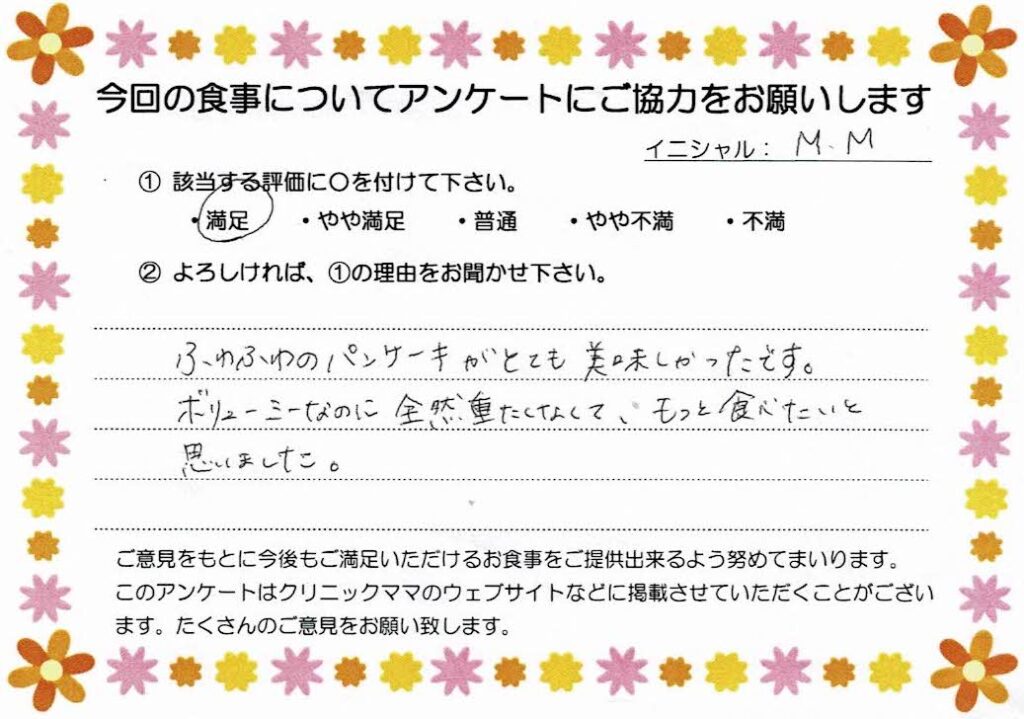 今回の食事についてアンケートにご協力をお願いします
イニシャル： M.M
① 該当する評価に〇を付けて下さい。
・満足 ・やや満足 ・普通 ・やや不満 ・不満
② よろしければ、①の理由をお聞かせ下さい。
ふわふわのパンケーキがとても美味しかったです。
ボリューミーなのに全然重たくなくて、もっと食べたいと
思いました。
ご意見をもとに今後もご満足いただけるお食事をご提供出来るよう努めてまいります。
このアンケートはクリニックママのウェブサイトなどに掲載させていただくことがござい
ます。たくさんのご意見をお願い致します。